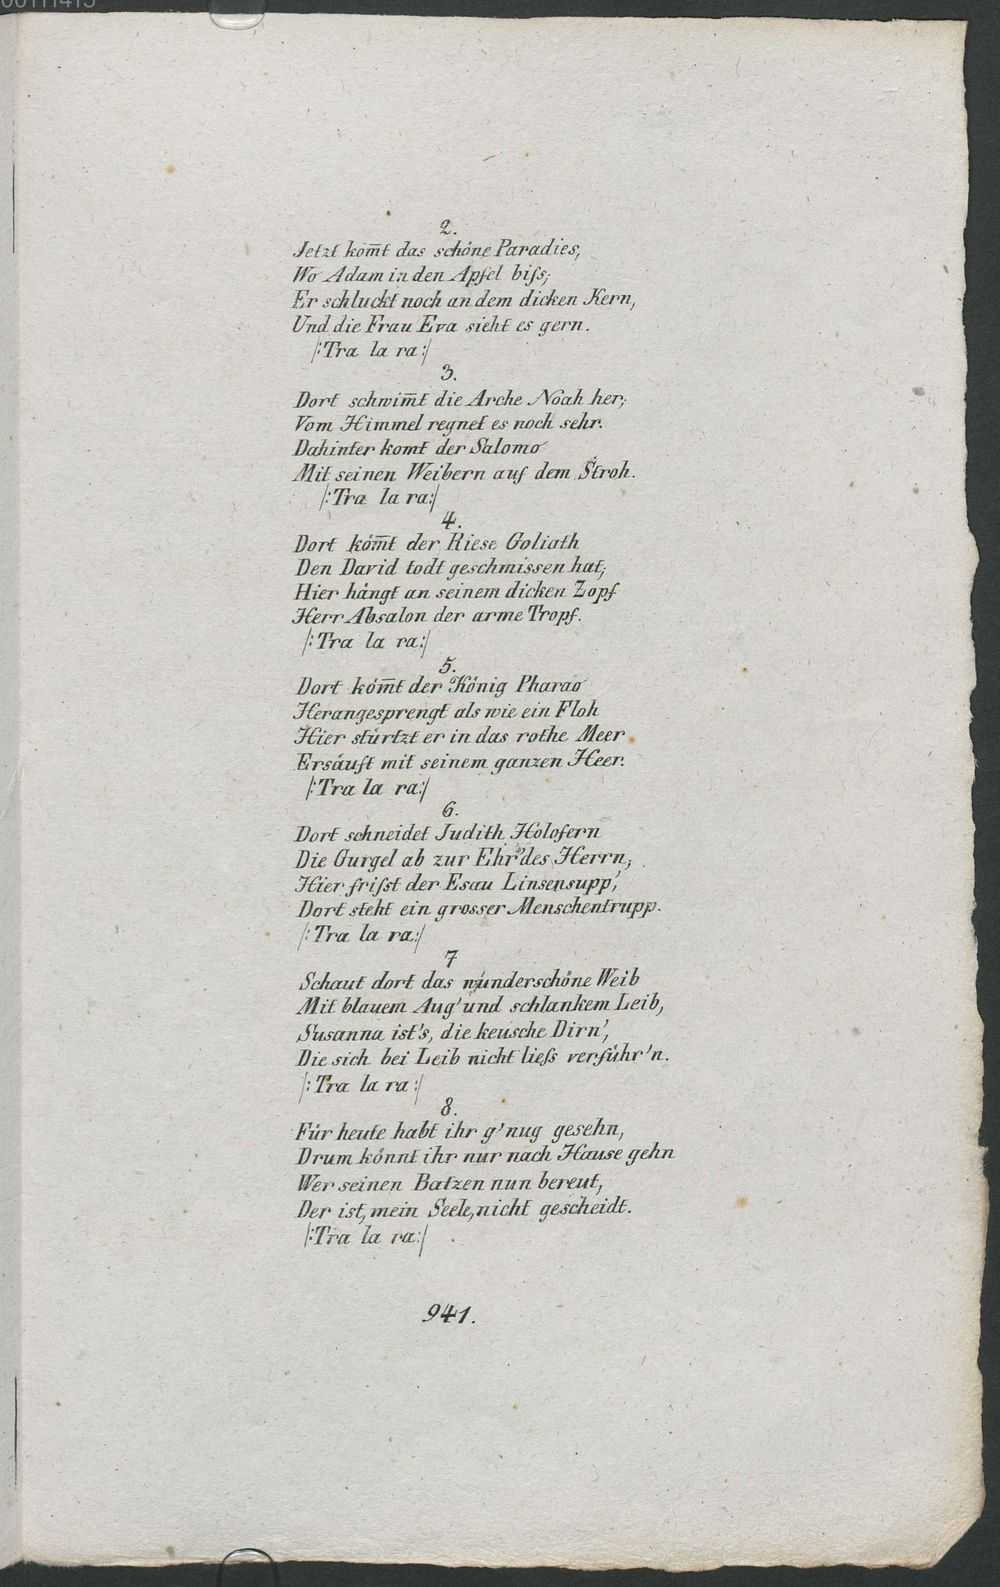 00111415
2.
Jetzt kom̅t das schöne Paradies,
Wo Adam in den Apfel biſs;
Er schluckt noch an dem dicken Kern,
Und die Frau Eva sieht es gern.
/:Tra la ra:/
3.
Dort schwim̅t die Arche Noah her;
Vom Himmel regnet es noch sehr.
Dahinter komt der Salomo
Mit seinen Weibern auf dem Stroh.
/:Tra la ra:/
4.
Dort köm̅t der Riese Goliath
Den David todt geschmissen hat;
Hier hängt an seinem dicken Zopf
Herr Absalon der arme Tropf.
/:Tra la ra:/
5.
Dort köm̅t der König Pharao
Herangesprengt als wie ein Floh
Hier stürtzt er in das rothe Meer
Ersäuft mit seinem ganzen Heer.
/:Tra la ra:/
6.
Dort schneidet Judith Holofern
Die Gurgel ab zur Ehr' des Herrn;
Hier friſst der Esau Linsensupp',
Dort steht ein grosser Menschentrupp.
/:Tra la ra:/
7
Schaut dort das wunderschöne Weib
Mit blauem Aug' und schlankem Leib,
Susanna ist's, die keusche Dirn',
Die sich bei Leib nicht lieſs verführ'n.
/:Tra la ra:/
8.
Für heute habt ihr g'nug gesehn,
Drum könnt ihr nur nach Hause gehn
Wer seinen Batzen nun bereut,
Der ist, mein Seele, nicht gescheidt.
/:Tra la ra:/
941.